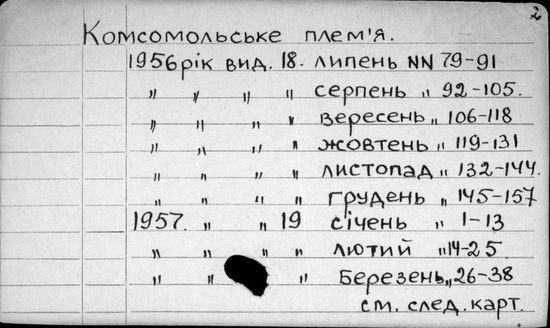 2
Комсомольське плем'я.
1956 рік вид. 18. липень NN 79-91
" " " " серпень " 92-105.
" " " " вересень " 106-118
" " " " жовтень " 119-131
" " " " листопад " 132-144.
" " " " грудень " 145-157
1957. " " 19 січень " 1-13
" " " " лютий " 14-25.
" " " березень " 26-38
см. след. карт.